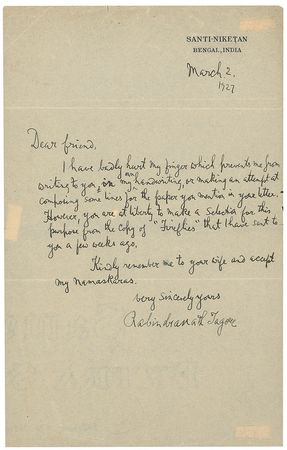 SANTI-NIKETAN
BENGAL, INDIA
March 2.
1927
Dear friend,
I have badly hurt my finger which prevents me from
writing to you in my own handwriting, or making an attempt at
composing some lines for the paper you mention in your letter.
However, you are at liberty to make a selection for this
purpose from the copy of "Fireflies" that I have sent to
you a few weeks ago.
Kindly remember me to your wife and accept
my Namaskaras.
Very sincerely yours
Rabindranath Tagore